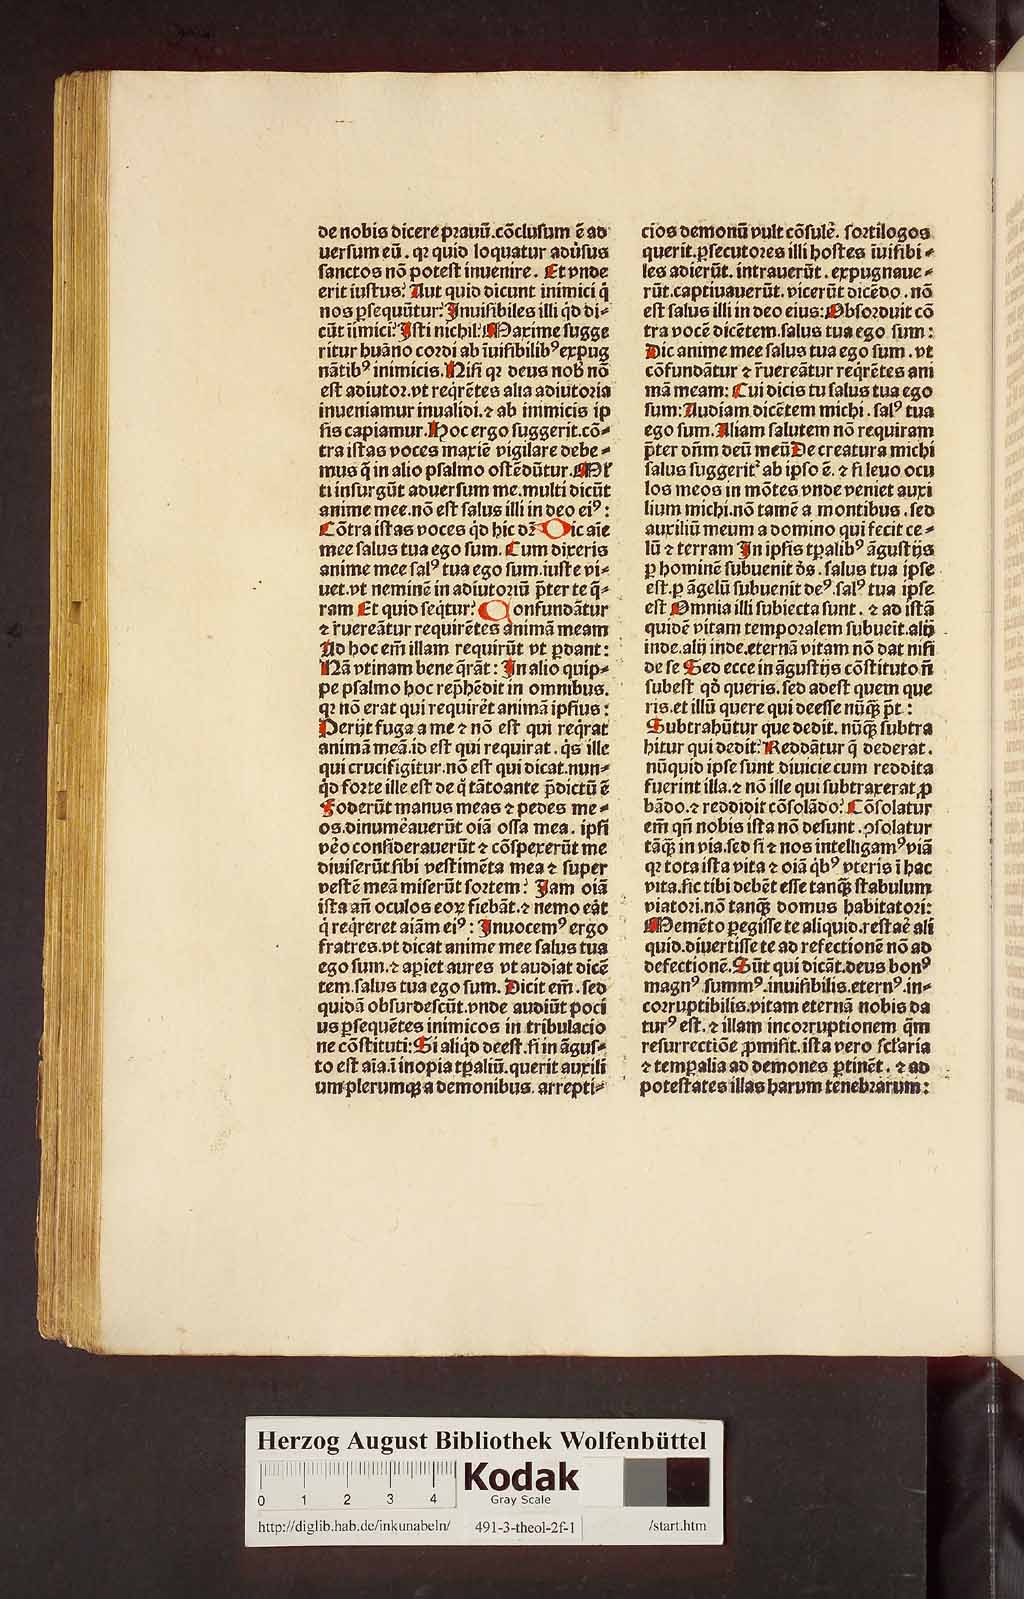 de nobis dicere prauū.cōclusum ē ad
uersum eū. qꝛ quid loquatur adûsus
sanctos nō potest inuenire. Et vnde
erit iustus? Aut quid dicunt inimici q̄
nos ꝑsequūtur? Inuisibiles illi qd̄ di⸗
cūt īimici? Isti nichil? Maxime sugge
ritur huāno cordi ab īuisibilibꝰ expug
nātibꝰ inimicis. Nisi qꝛ deus nob̄ nō
est adiutor.vt reqr̄ētes alia adiutoria
inueniamur inualidi.⁊ ab inimicis ip
sis capiamur. Hoc ergo suggerit.cō⸗
tra istas voces maxīe vigilare debe⸗
mus q̄ in alio psalmo ostēdūtur. Ml̄
ti insurgūt aduersum me.multi dicūt
anime mee.nō est salus illi in deo eiꝰ:
Cōtra istas voces qd̄ hic dꝛ̄ Dic aīe
mee salus tua ego sum. Cum dixeris
anime mee salꝰ tua ego sum.iuste vi⸗
uet.vt neminē in adiutoriū p̄ter te q̄⸗
ram Et quid seq̄tur? Confundātur
⁊ r̄uereātur requirētes animā meam
Ad hoc em̄ illam requirūt vt ꝑdant:
Nā vtinam bene q̄rāt: In alio quip⸗
pe psalmo hoc rep̄hēdit in omnibus.
qꝛ nō erat qui requirēt animā ipsius:
Perijt fuga a me ⁊ nō est qui reqr̄at
animā meā.id est qui requirat. q̄s ille
qui crucifigitur.nō est qui dicat.nun⸗
qd̄ forte ille est de q̄ tātoante p̄dictū ē
Foderūt manus meas ⁊ pedes me⸗
os.dinumēauerūt oīā ossa mea. ipsi
vēo considerauerūt ⁊ cōspexerūt me
diuiserūt sibi vestimēta mea ⁊ super
vestē meā miserūt sortem? Jam oīā
ista an̄ oculos eoꝝ fiebāt.⁊ nemo eāt
q̄ reqr̄eret aīam eiꝰ: Inuocemꝰ ergo
fratres.vt dicat anime mee salus tua
ego sum.⁊ aꝑiet aures vt audiat dicē
tem.salus tua ego sum. Dicit em̄. sed
quidā obsurdescūt.vnde audiūt poci
us ꝑsequētes inimicos in tribulacio
ne cōstituti: Si aliqd̄ deest.si in āgus⸗
to est aīa.ī inopia tꝑaliū.querit auxili
um.plerumqꝫ a demonibus. arrepti⸗
cios demonū vult cōsulē. sortilogos
querit.ꝑsecutores illi hostes īuisibi⸗
les adierūt. intrauerūt. expugnaue⸗
rūt.captiuauerūt. vicerūt dicēdo. nō
est salus illi in deo eius: Obsorduit cō
tra vocē dicētem.salus tua ego sum:
Dic anime mee salus tua ego sum. vt
cōfundātur ⁊ r̄uereātur reqr̄ētes ani
mā meam: Cui dicis tu salus tua ego
sum: Audiam dicētem michi. salꝰ tua
ego sum. Aliam salutem nō requiram
p̄ter dn̄m deū meū De creatura michi
salus suggerit᷑ ab ipso ē. ⁊ si leuo ocu
los meos in mōtes vnde veniet auxi
lium michi.nō tamē a montibus. sed
auxiliū meum a domino qui fecit ce⸗
lū ⁊ terram In ipsis tꝑalibꝰ āgustijs
ꝑ hominē subuenit d̄s. salus tua ipse
est.ꝑ āgelū subuenit deꝰ.salꝰ tua ipse
est Omnia illi subiecta sunt. ⁊ ad istā
quidē vitam temporalem subueīt.alij
inde.alij inde.eternā vitam nō dat nisi
de se Sed ecce in āgustijs cōstituto n̄
subest qd̄ queris. sed adest quem que
ris.et illū quere qui deesse nūqꝫ p̄t:
Subtrahūtur que dedit. nūqꝫ subtra
hitur qui dedit? Reddātur q̄ dederat.
nūquid ipse sunt diuicie cum reddita
fuerint illa.⁊ nō ille qui subtraxerat ꝓ
bādo.⁊ reddidit cōsolādo? Cōsolatur
em̄ qn̄ nobis ista nō desunt. ꝯsolatur
tāqꝫ in via.sed si ⁊ nos intelligamꝰ viā
qꝛ tota ista vita ⁊ oīā q̄bꝰ vteris ī hac
vita.sic tibi debēt esse tanqꝫ stabulum
viatori.nō tanqꝫ domus habitatori:
Memēto ꝑegisse te aliquid.restaē ali
quid.diuertisse te ad refectionē nō ad
defectionē. Sūt qui dicāt.deus bonꝰ
magnꝰ.summꝰ.inuisibilis.eternꝰ.in⸗
corruptibilis.vitam eternā nobis da
turꝰ est.⁊ illam incorruptionem q̄m
resurrectiōe ꝓmisit.ista vero sc̄laria
⁊ tempalia ad demones ꝑtinēt. ⁊ ad
potestates illas harum tenebrarum:
Herzog August Bibliothek Wolfenbüttel
0 1 2 3 4
Kodak
Gray Scale
http://diglib.hab.de/inkunabeln/ 491-3-theol-2f-1 /start.htm